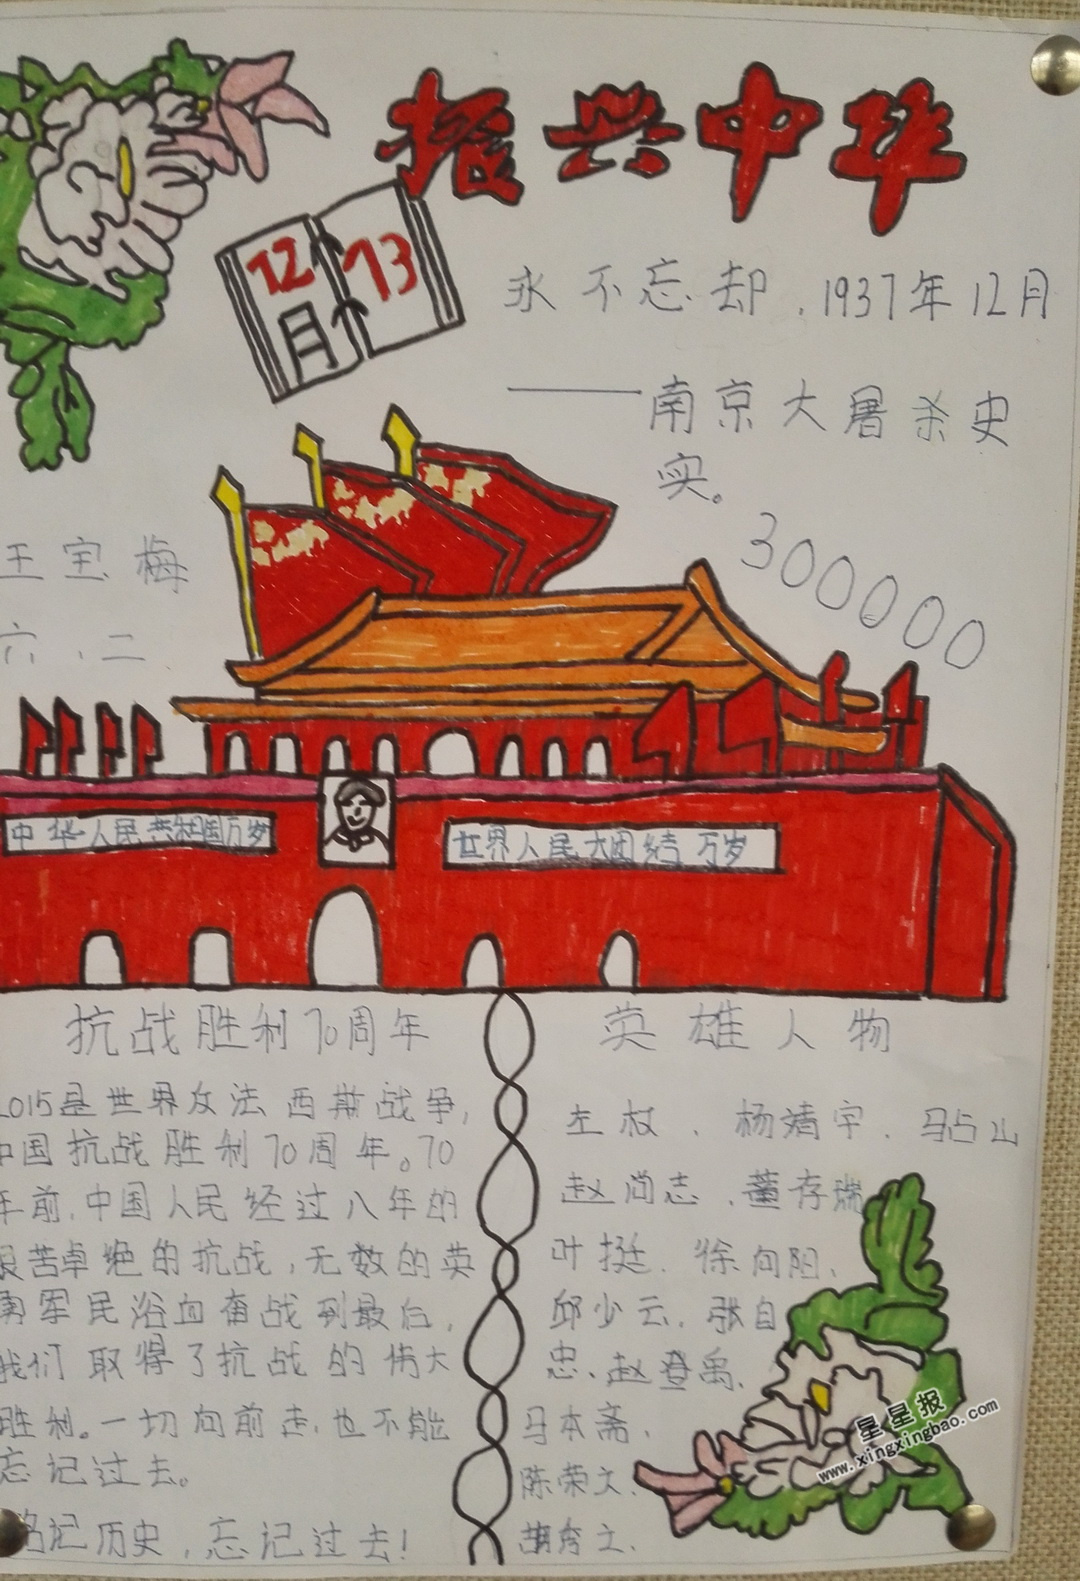 振兴中华
12月 13
永不忘却，1937年12月
——南京大屠杀史
实。
300000
王宝梅
六、二
中华人民共和国万岁
世界人民大团结万岁
抗战胜利70周年
2015是世界反法西斯战争,
中国抗战胜利70周年。70
年前,中国人民经过八年的
艰苦卓绝的抗战,无数的英
勇军民浴血奋战到最后,
我们取得了抗战的伟大
胜利。一切向前走,也不能
忘记过去。
铭记历史,忘记过去!
英雄人物
左权、杨靖宇、马占山
赵尚志、董存瑞
叶挺、徐向阳、
邱少云、张自
忠、赵登禹、
马本斋、
陈荣文、
星星报
www.xingxingbao.com